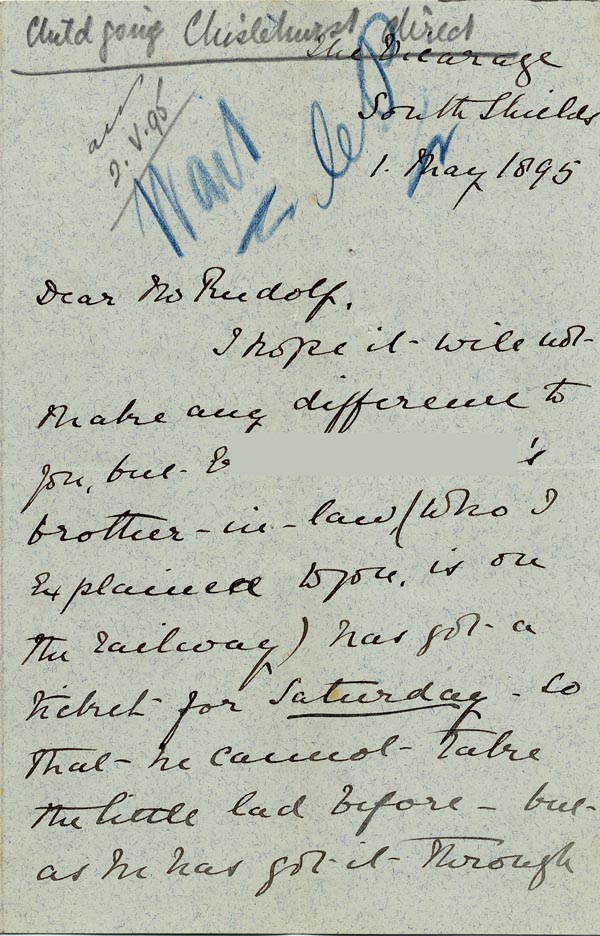 Child going Chislehurst direct
The Vicarage
South Shields
1. May 1895
2.V.95
Wait
Dear Mr Rudolf,
I hope it will not
make any difference to
you, but E 's
brother-in-law (who I
explained to you, is on
the railway) has got a
ticket for Saturday - so
that he cannot take
the little lad before - but
as he has got it through